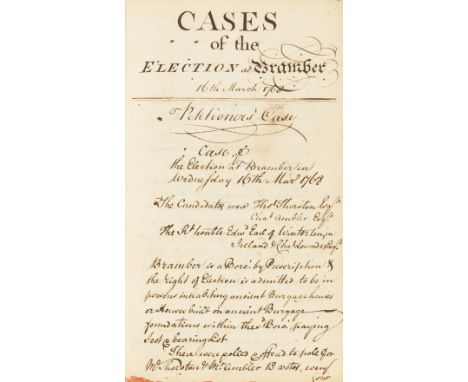 CASES
of the
ELECTION at Bramber
16th March 1768
Petitioners Case
Case of
the Election at Bramber on
Wednesday 16th Mar 1768
The Candidates were Thos Thoroton Esqr
Chas Ambler Esqr
The Rt honble Edwd Earl of Winterton in
Ireland & Chas Lowndes Esqr
Bramber is a Boro' by Prescription &
the right of Election is admitted to be in
persons inhabiting ancient Burgage houses
or Houses built on ancient Burgage
foundations within the sd Boro' paying
Scot & bearing Lot
There were polled & offered to poll for
Mr Thoroton & Mr Ambler 18 votes,